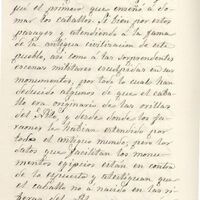 fué el primero que enseñó á do-
mar los caballos. Si bien por estos
parages y atendiendo á la fama
de la antigua civilizacion de este
pueblo, así como á las sorprendentes
escenas militares esculpidas en sus
monumentos, por todo lo cual han
deducido algunos de que el caba-
llo era originario de las orillas
del Nilo, y desde donde los fa-
raones lo habian estendido por
todo el antiguo mundo, pero los
datos que facilitan los monu-
mentos egipcios están en contra
de lo espuesto y atestiguan que
el caballo no á nacido en las ri-
beras del